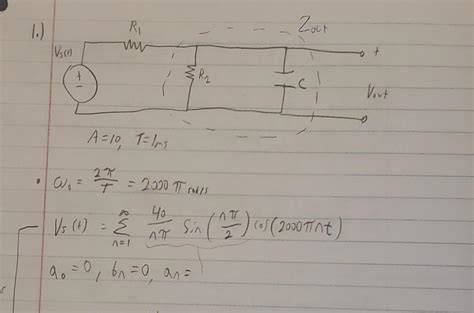 1.)
R₁
Zout
Vs(t)
+
-
R₂
C
+
Vout
A=10, T=1ms
• ω₁ = 2π/T = 2000 π rad/s
Vs(t) = ∑_{n=1}^{∞} 40/nπ Sin(nπ/2) cos(2000πnt)
a₀=0, bₙ=0, aₙ=